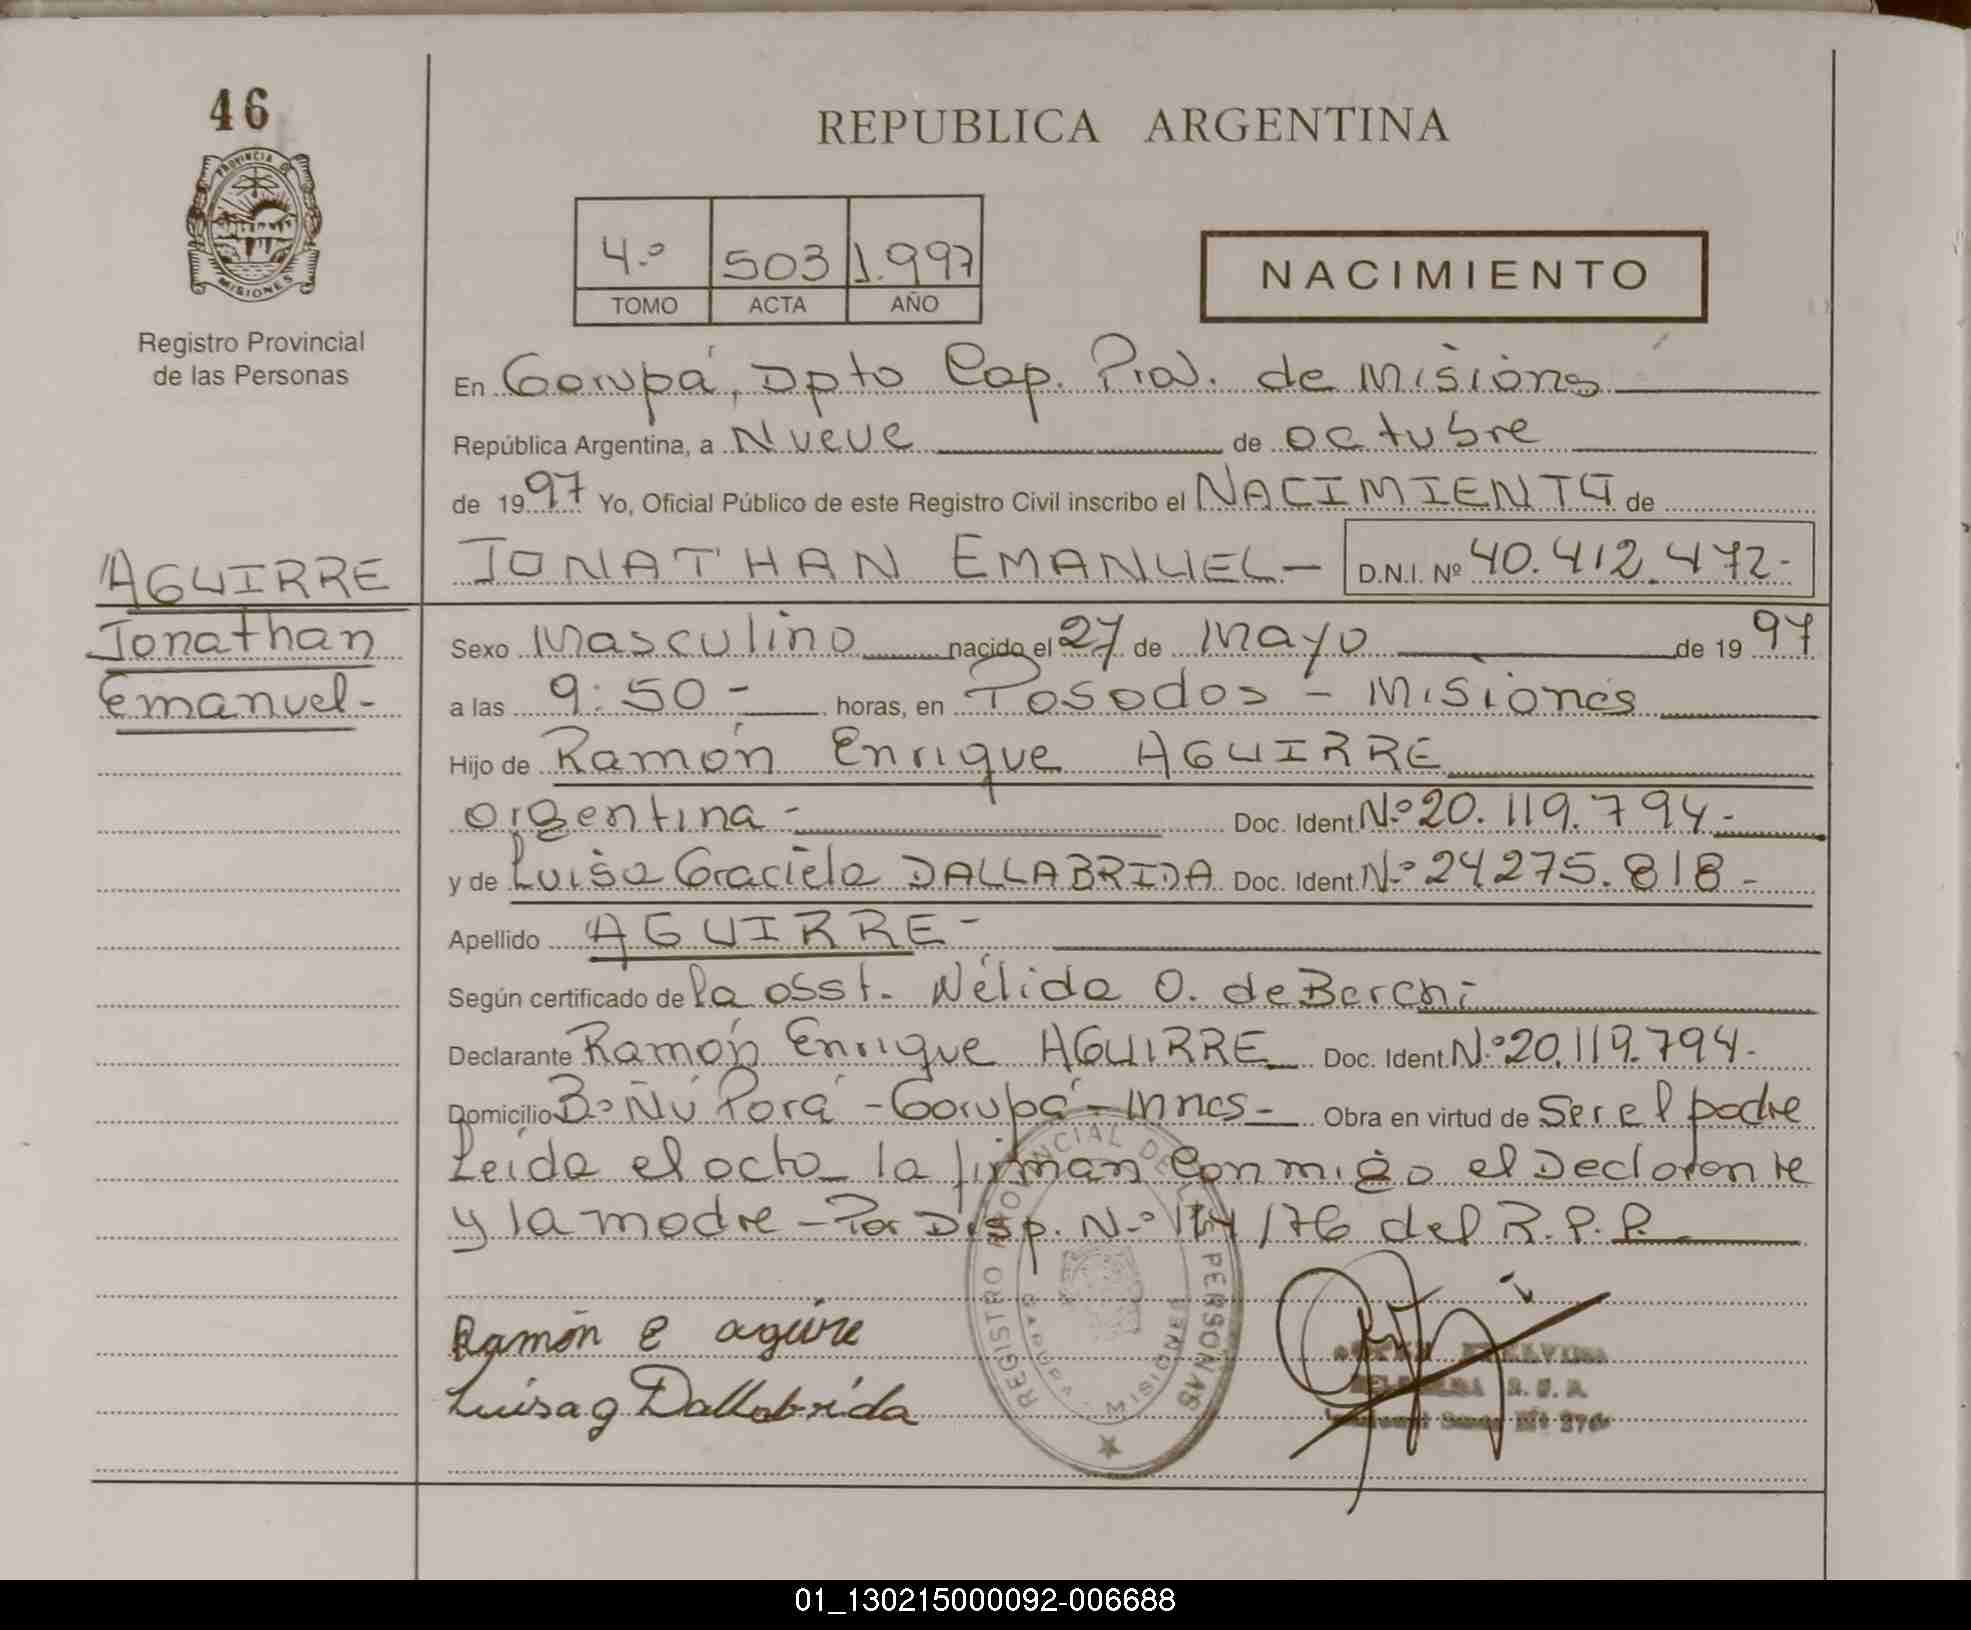 46
REPUBLICA ARGENTINA
PROVINCIA DE
MISIONES
4.º 503 1.997
TOMO ACTA AÑO
NACIMIENTO
Registro Provincial
de las Personas
En Garupá, Dpto Cap. Prov. de Misiones
República Argentina, a Nueve de octubre
de 1997 Yo, Oficial Público de este Registro Civil inscribo el NACIMIENTO de
JONATHAN EMANUEL- D.N.I. Nº 40.412.472-
AGUIRRE
Jonathan
Emanuel-
Sexo Masculino nacido el 27 de Mayo de 1997
a las 9:50- horas, en Posadas - Misiones
Hijo de Ramón Enrique AGUIRRE
argentina- Doc. Ident. Nº 20.119.794-
y de Luisa Graciela DALLABRIDA Doc. Ident. Nº 24275.818-
Apellido AGUIRRE-
Según certificado de la asst. Nélida O. de Barchi
Declarante Ramón Enrique AGUIRRE Doc. Ident. Nº 20.119.794-
Domicilio Bº Ñú Porá - Garupá - Mnes- Obra en virtud de Ser el padre
Leída el acta la firman Conmigo el Declarante
y la madre - Por Disp. Nº 174/76 del R.P.P.
Ramón E aguirre
Luisa g Dallabrida
REGISTRO PROVINCIAL DE LAS PERSONAS
GARUPA - MISIONES
01_130215000092-006688